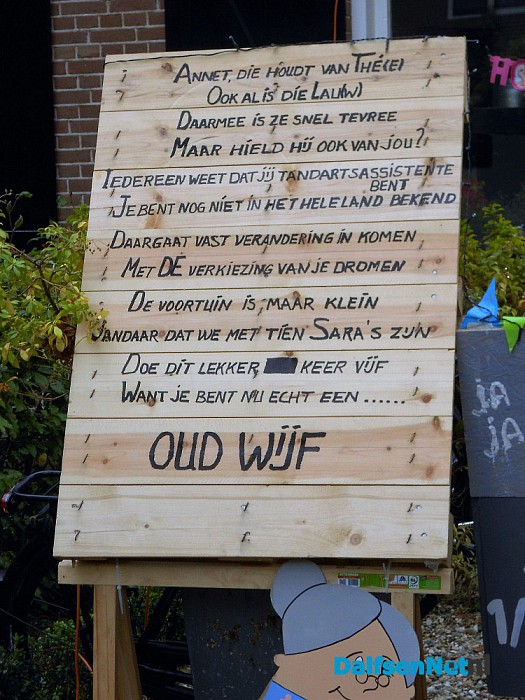 ANNET, DIE HOUDT VAN THÉ(E)
OOK AL IS DIE LAU(W)
DAARMEE IS ZE SNEL TEVREE
MAAR HIELD HIJ OOK VAN JOU?
IEDEREEN WEET DAT JIJ TANDARTSASSISTENTE
BENT
JE BENT NOG NIET IN HET HELE LAND BEKEND
DAAR GAAT VAST VERANDERING IN KOMEN
MET DÉ VERKIEZING VAN JE DROMEN
DE VOORTUIN IS, MAAR KLEIN
VANDAAR DAT WE MET TIEN SARA'S ZIJN
DOE DIT LEKKER KEER VIJF
WANT JE BENT NU ECHT EEN ......
OUD WIJF
JA
JA
DalfsenNet.nl